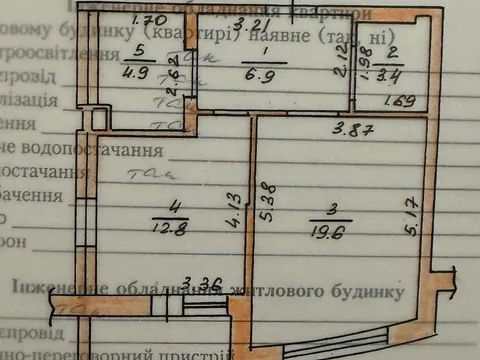 Інженерне обладнання квартири
овому будинку (квартирі) наявне (так, ні)
1.70
3.21
5
4.9
2.62
1
6.9
2.12
1.98
2
3.4
1.69
троосвітлення
так
провід
так
лізація
так
ення
так
че водопостачання
достачання
так
бачення
о
рон
3.87
4
12.8
4.13
5.38
3
19.6
5.17
3.36
Інженерне обладнання житлового будинку
так
епровід
но-переговорний пристрій